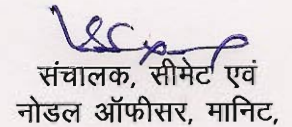 संचालक, सीमेट एवं
नोडल ऑफीसर, मानिट,